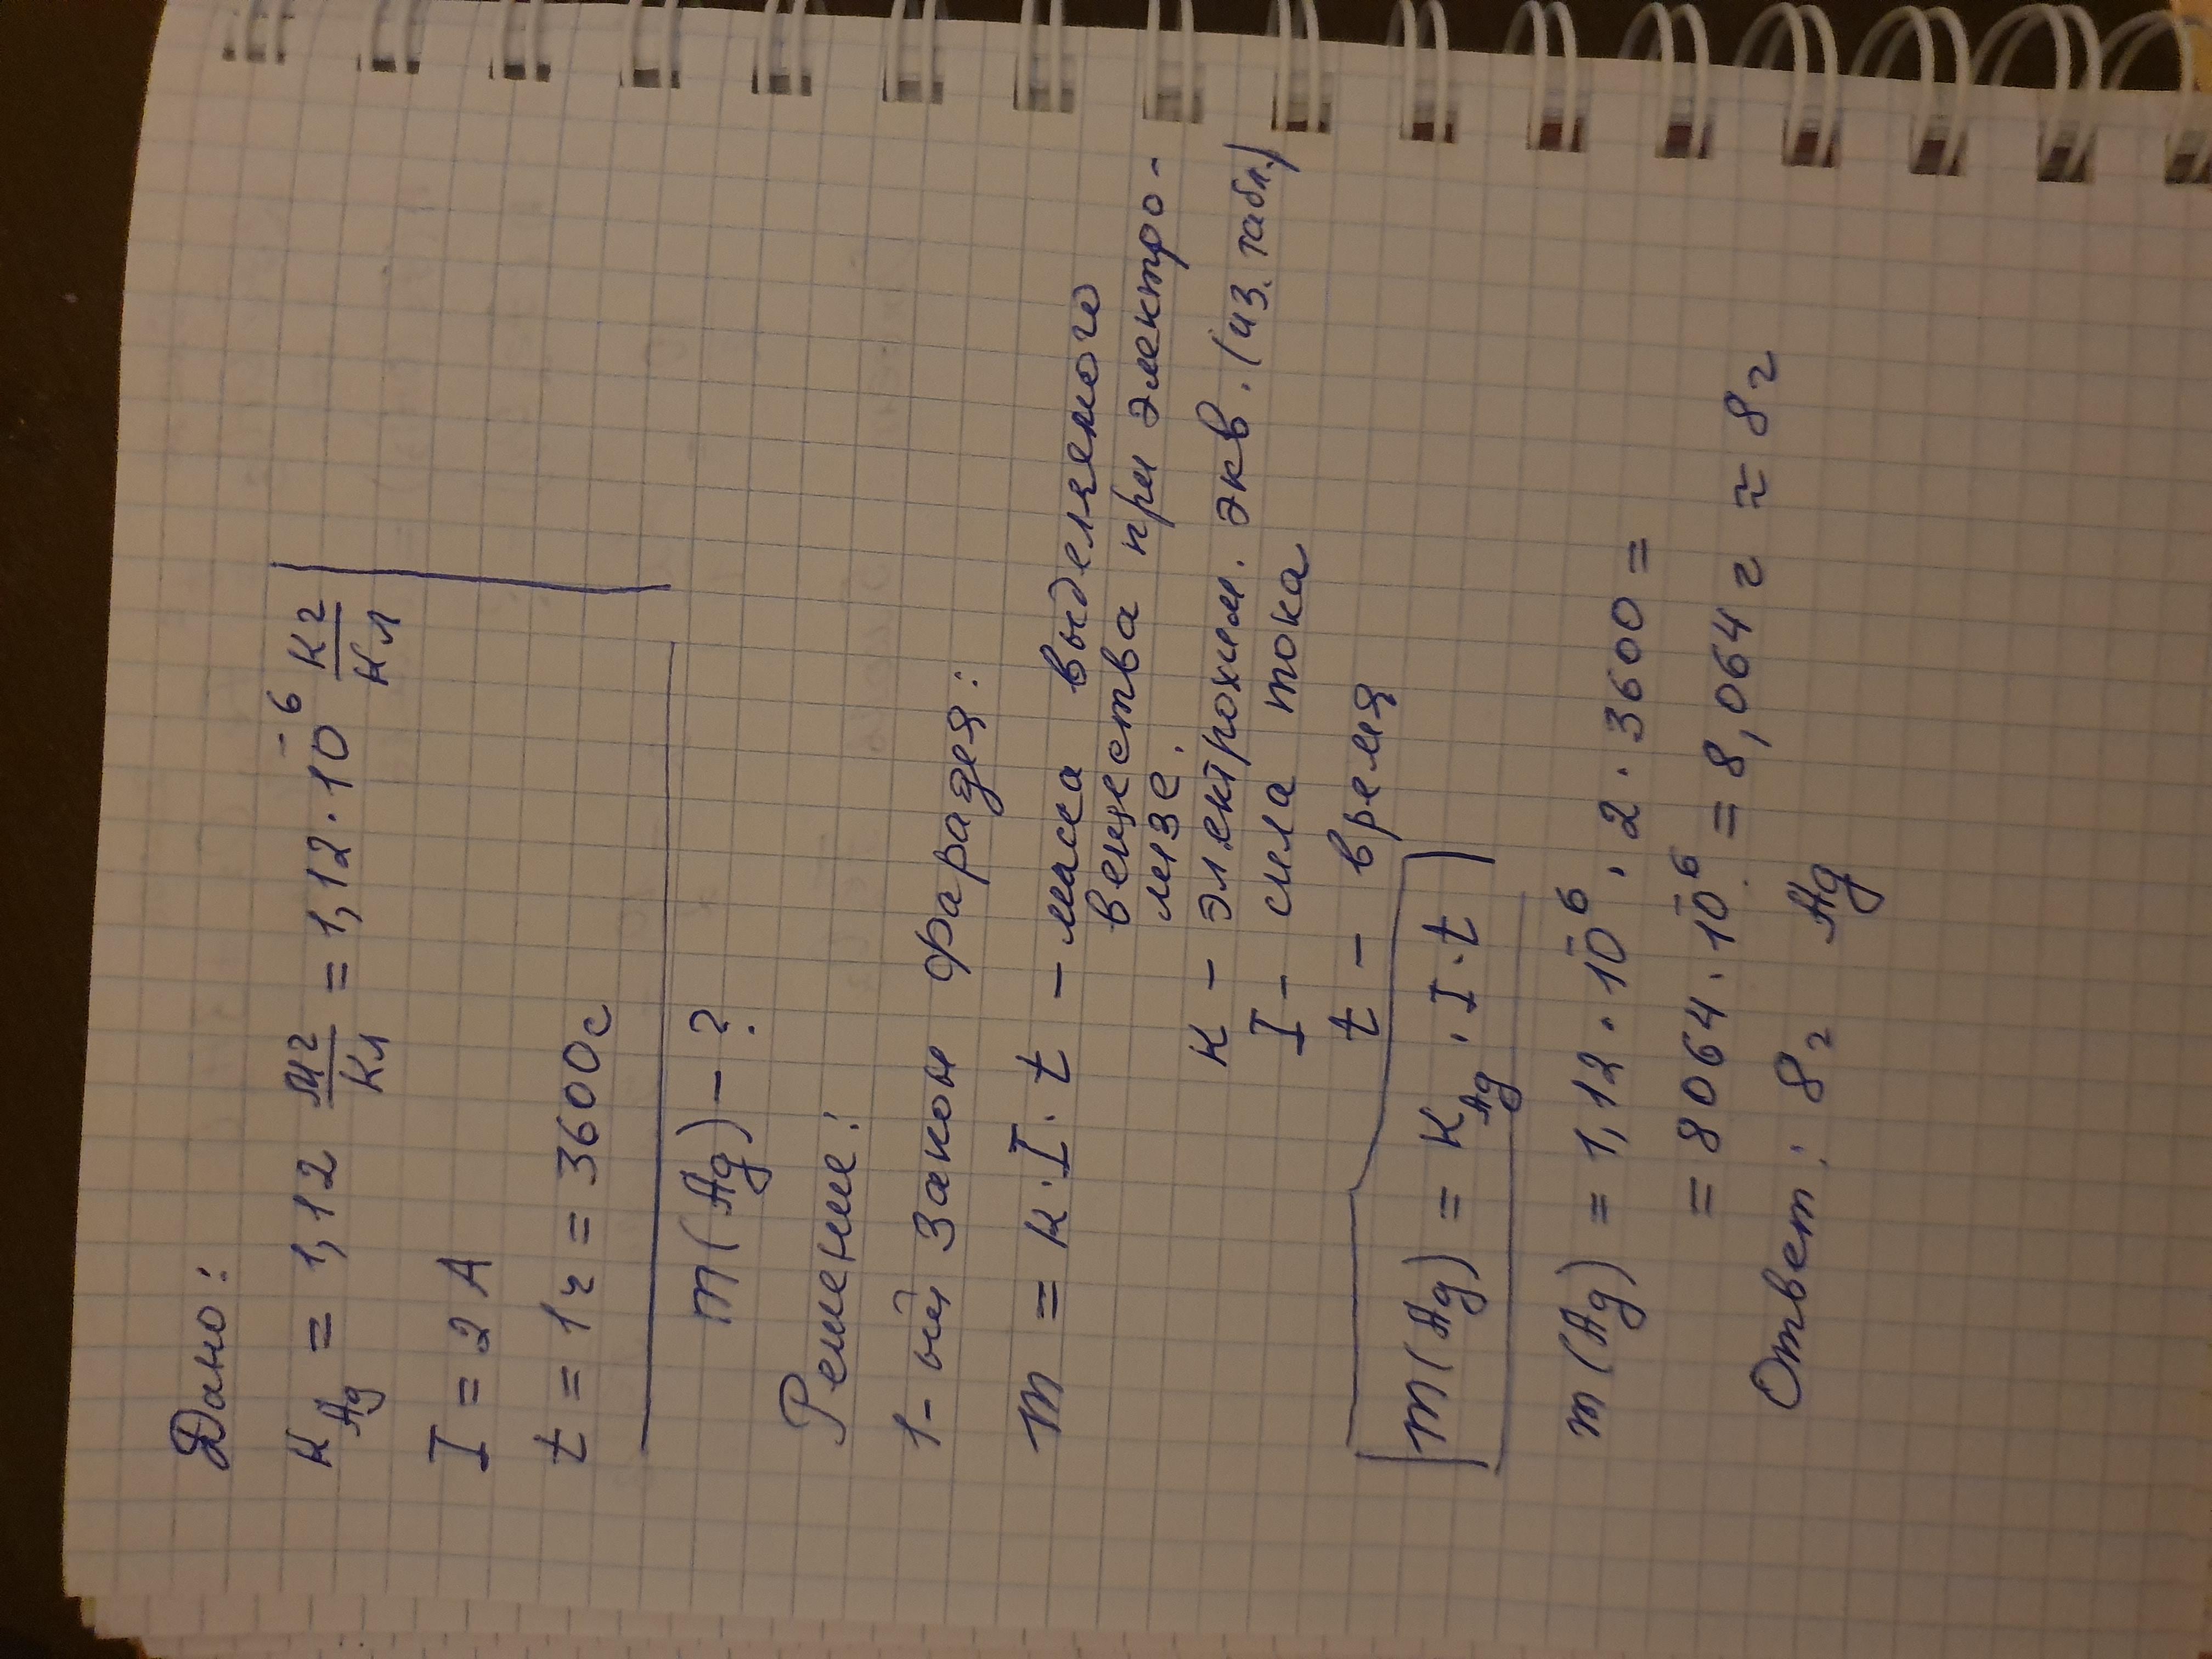 Дано:
к Ag = 1,12 мг/Кл = 1,12 · 10⁻⁶ кг/Кл
I = 2 A
t = 1ч = 3600с
m(Ag) – ?
Решение:
1-ый закон фарадея:
m = к · I · t – масса выделяемого
вещества при электро-
лизе.
к – электрохим. экв. (из. табл.)
I – сила тока
t – время
m(Ag) = к Ag · I · t
m(Ag) = 1,12 · 10⁻⁶ · 2 · 3600 =
= 8064 · 10⁻⁶ = 8,064 г ≈ 8г
Ответ: 8г Ag